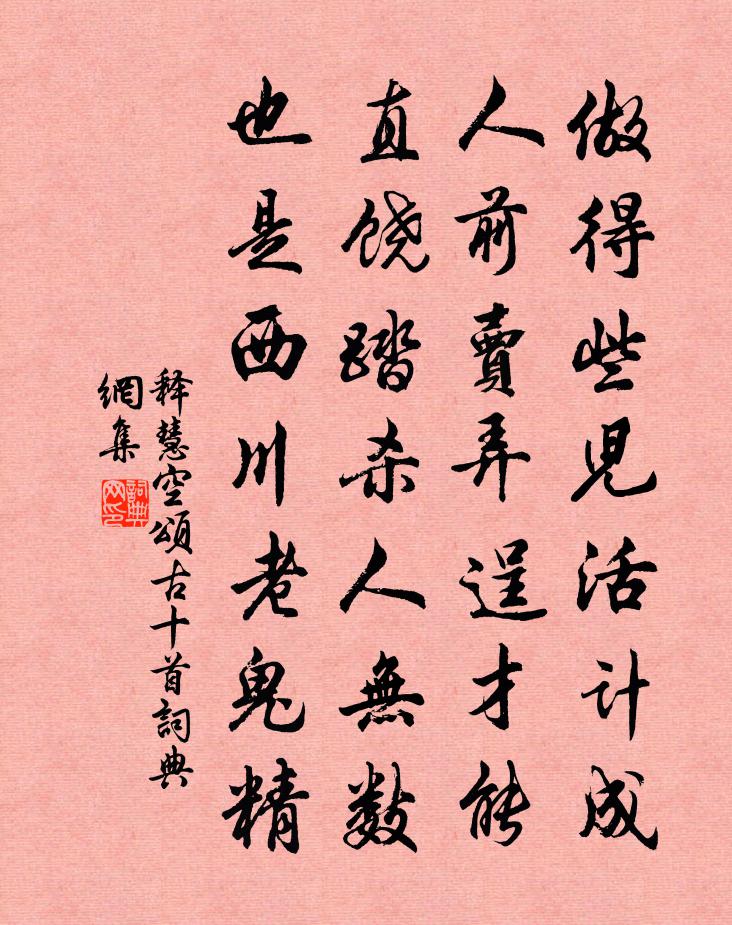 做得些児活计成
人前賣弄逞才能
直饶踏杀人無数
也是西川老鬼精
释慧空頌古十首詞典
網集
詞典
网印